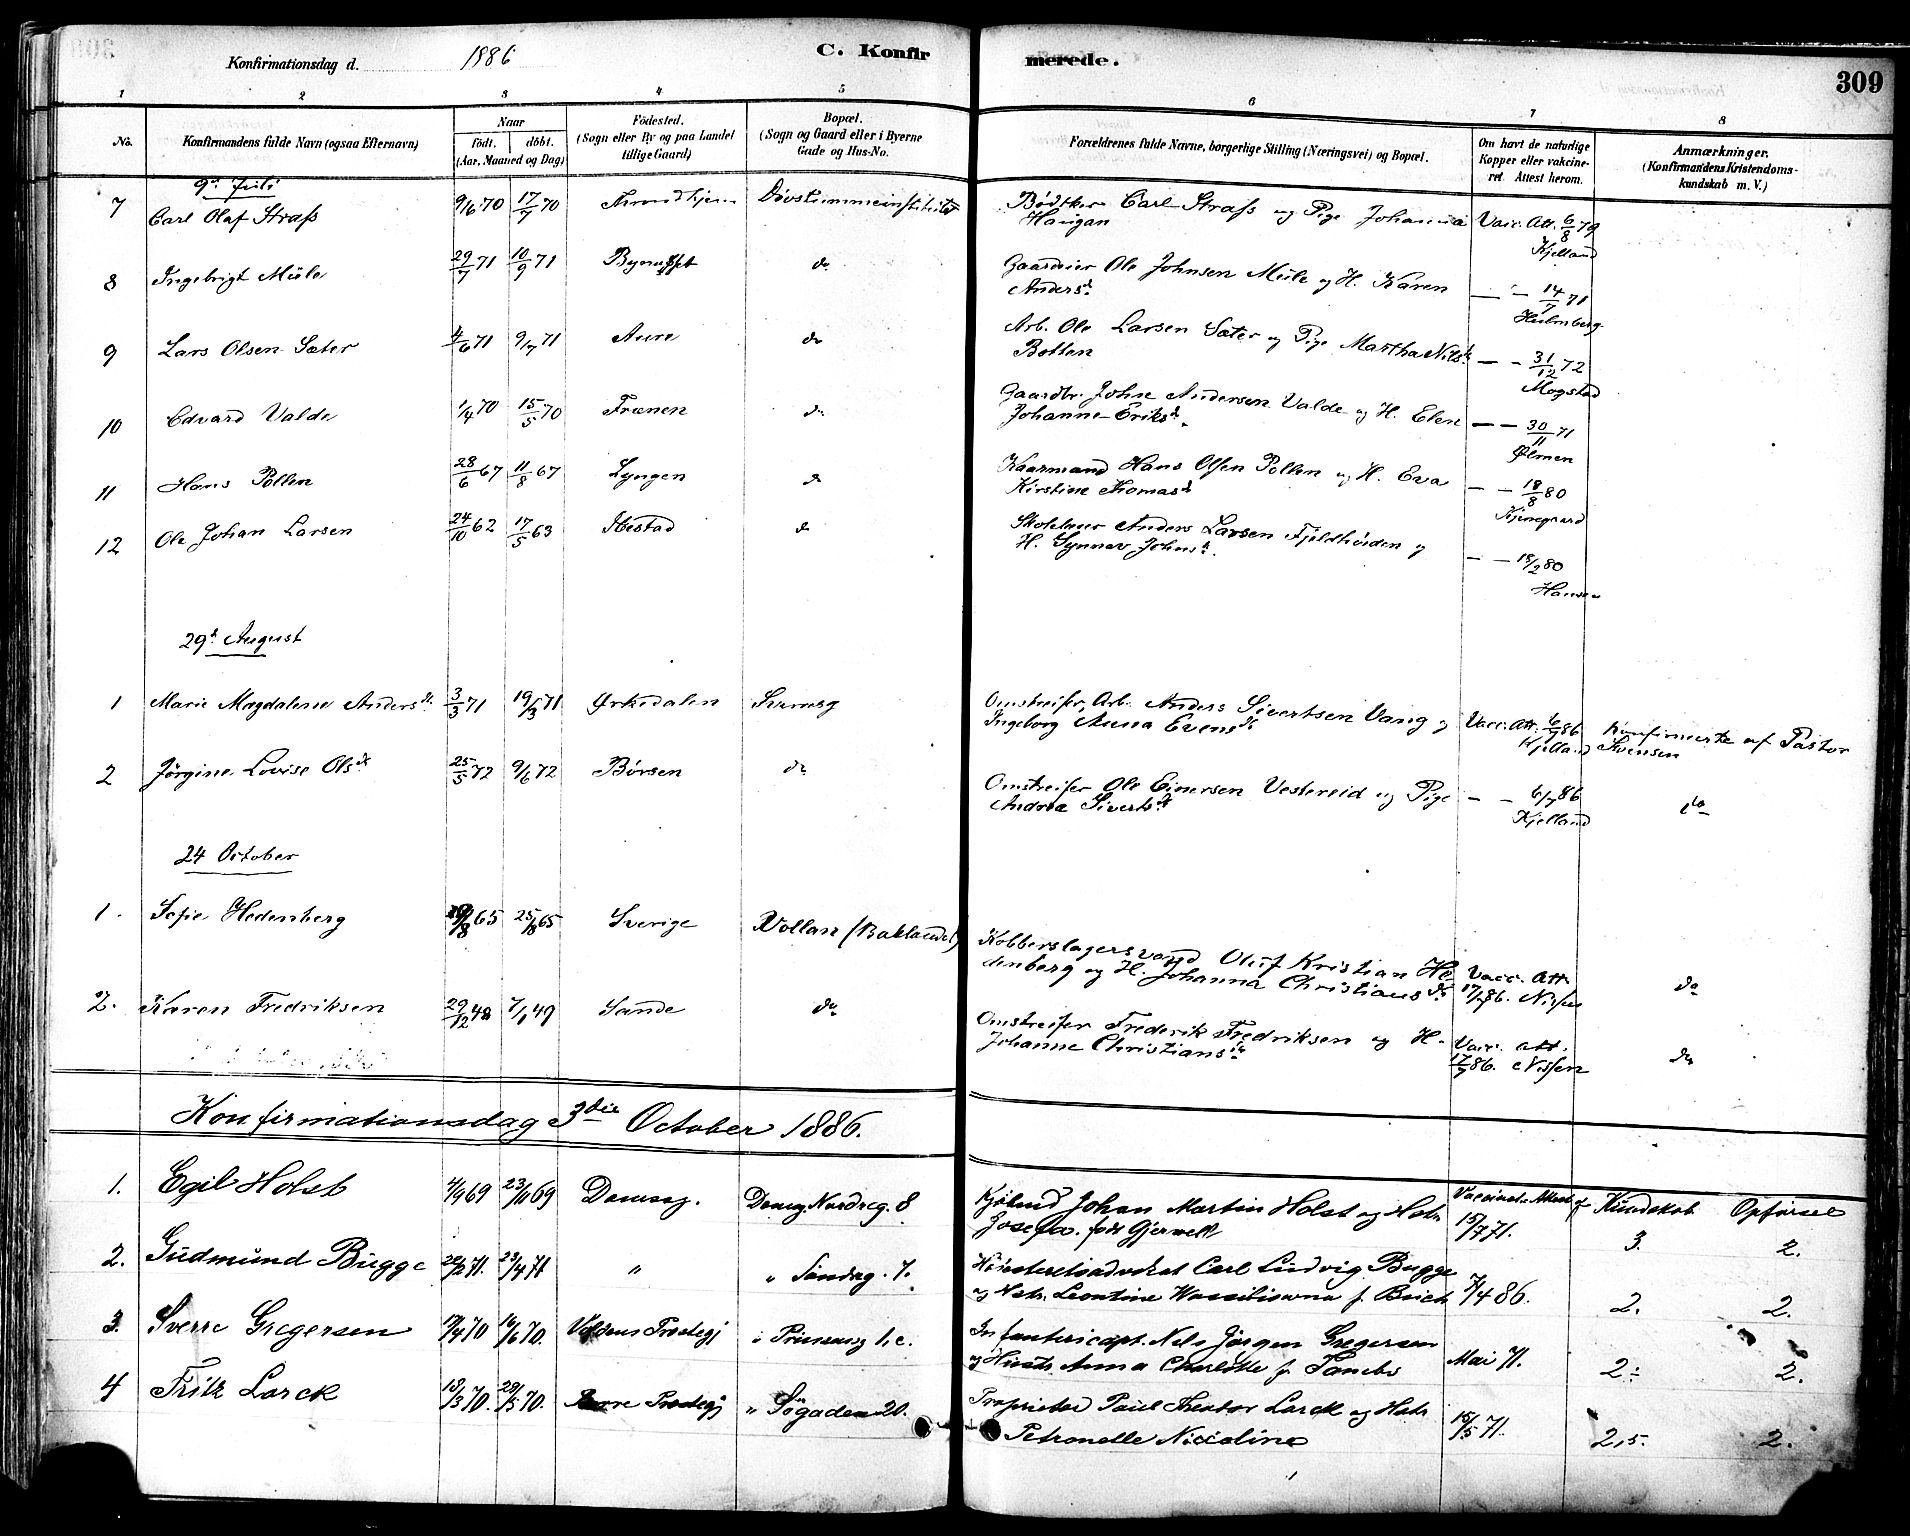 Konfirmationsdag d. 1886
C. Konfirmerede.
309
1 2 3 4 5 6 7 8
No.
Konfirmandens fulde Navn (ogsaa Efternavn)
Naar
födt. döbt.
(Aar, Maaned og Dag)
Födested.
(Sogn eller By og paa Landet
tillige Gaard)
Bopæl.
(Sogn og Gaard eller i Byerne
Gade og Hus-No.
Forældrenes fulde Navne, borgerlige Stilling (Næringsvei) og Bopæl.
Om havt de naturlige
Kopper eller vakcine-
ret. Attest herom.
Anmærkninger.
(Konfirmandens Kristendoms-
kundskab m. V.)
9de Juli
7 Carl Olaf Strass 9/6 70 17/7 70 Trondhjem Døvstummeinstitutet Bødtker Carl Strass og Pige Johanna
Haugan Vacc. Att. 6/8 79
Kjelland
8 Ingebrigt Mule 29/7 71 10/9 71 Bynesset do Gaardeier Ole Johnsen Mule og H. Karen
Andersd. — " — 14/7 71
Holmberg
9 Lars Olsen Sæter 4/6 71 9/7 71 Aure do Arb. Ole Larsen Sæter og Pige Martha Nilsd.
Botten — - 31/12 72
Mogstad
10 Edvard Valde 1/4 70 15/5 70 Frænen do Gaardbr. Johne Andersen Valde og H. Elen
Johanne Eriksd. — — 30/11 71
11 Hans Pollen 28/6 67 11/8 67 Lyngen do Kaarmand Hans Olsen Pollen og H. Eva
Kirstine Thomasd. — - 18/8 80
12 Ole Johan Larsen 24/10 62 17/5 63 Ibestad do Skolelærer Anders Larsen Fjeldhøiden og
H. Synnev Johnsd. — — 18/2 80
Hansen
29d August
1 Marie Magdalene Andersd. 3/3 71 19/3 71 Ørkedalen Omstreifer, Arb. Anders Sivertsen Vang og
Ingeborg Anna Evensd. Vacc. Att. 6/7 86
Kjelland Konfirmerte af Pastor
Svensen
2 Jörgine Lovise Olsd. 25/5 72 9/6 72 Börsen do Omstreifer Ole Einersen Vestereid og Pige
Andrea Sivertsd. — - 6/7 86
Kjelland do
24 October
1. Sofie Hedenberg 65 25/8 65 Sverige Vollan (Baklandet) Kobberslagersvend Oluf Kristian He-
denberg og H. Johanna Christiansd. Vacc. Att.
17/7 86. Nissen do
2. Karen Fredriksen 29/12 48 7/1 49 Sande do Omstreifer Frederik Fredriksen og H.
Johanne Christiansd. Vacc. att.
17/7 86. Nissen do
Konfirmationsdag 3die October 1886.
1. Egil Holst 4/9 69 23/11 69 Domsog. Domsg. Nordreg. 8 Kjöbmd Johan Martin Holst og Hstr.
Josefa, födt Gjerwell Vaccinat. Attest af
15/7 71. Kundskab Opförsel
3. 2.
2. Gudmund Bugge 71. 23/4 71 " " Söndreg. 7. Höiesteretsadvokat Carl Ludvig Bugge
og Hstr. Leontine Wassiliewna f. Brich 7/4 86. 2. 2.
3. Sverre Gregersen 70 16/6 70. Voldens Præstegj " Prinsensg 1,c. Infantericapt. Nels Jörgen Gregersen
og Hustr. Anna Charlotte f. Mai 71. 2÷ 2.
4 Fritz Lorck 18/3 70. 29/5 70. Præstegj " Søgaden 20. Proprietær Paul Theodor Lorck og Hstr
Petronelle Nicoline 15/5 71. 2,5. 2.